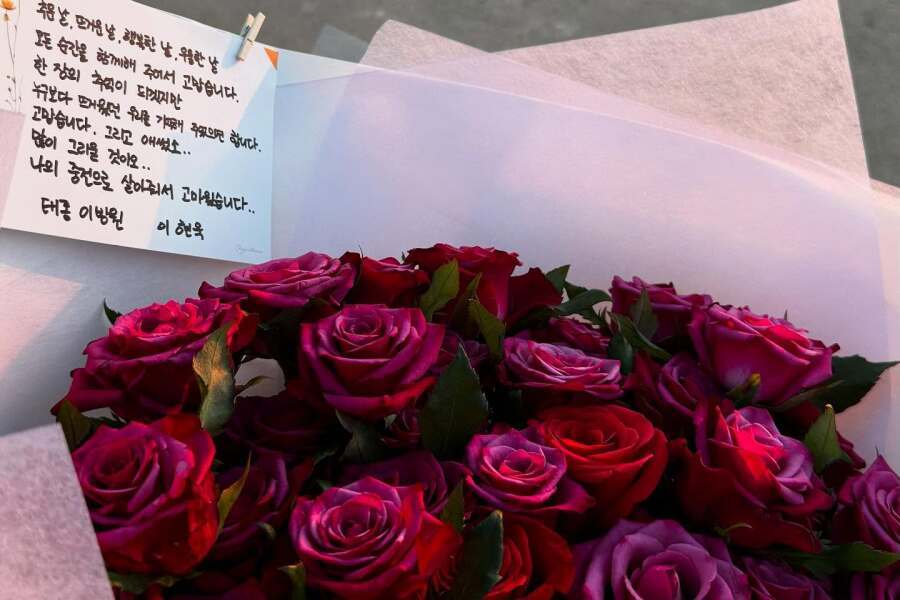 추운 날, 뜨거운 날, 행복한 날, 우울한 날
모든 순간을 함께해 주어서 고맙습니다.
한 장의 추억이 되겠지만
누구보다 뜨거웠던 우리를 기억해 주었으면 합니다.
고맙습니다. 그리고 애썼소..
많이 그리울 것이오..
나의 중전으로 살아주어서 고마웠습니다..
태종 이방원 이현욱